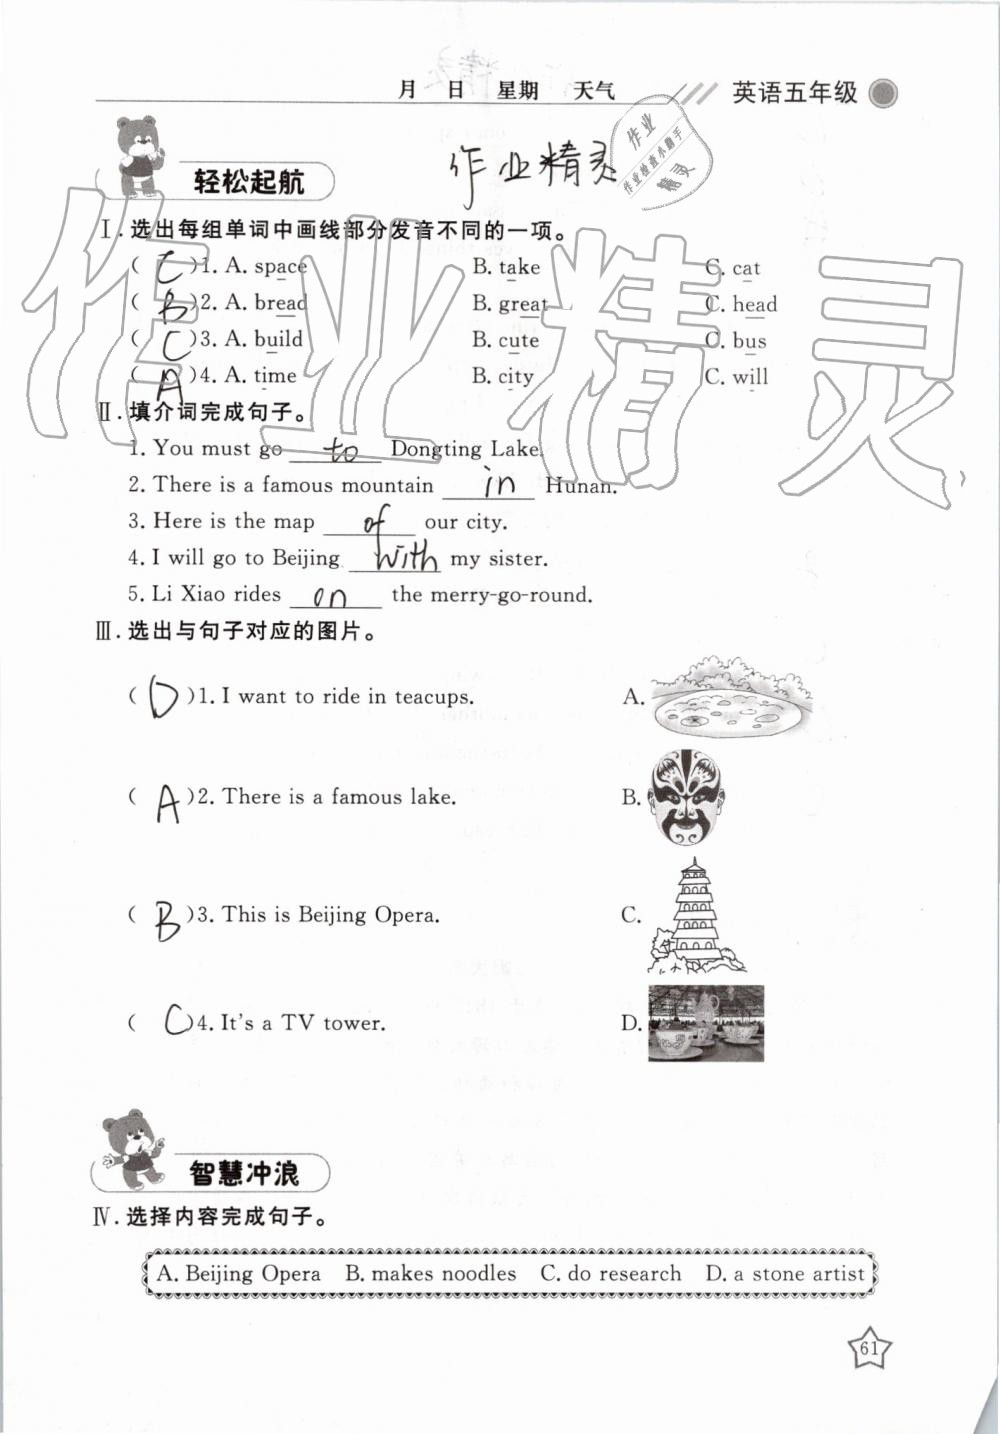 月 日 星期 天气 英语五年级
作业
作业检查小助手
精灵
作业精灵
轻松起航
Ⅰ.选出每组单词中画线部分发音不同的一项。
( C )1. A. space B. take C. cat
( B )2. A. bread B. great C. head
( C )3. A. build B. cute C. bus
( A )4. A. time B. city C. will
作业精灵
Ⅱ.填介词完成句子。
1. You must go to Dongting Lake.
2. There is a famous mountain in Hunan.
3. Here is the map of our city.
4. I will go to Beijing with my sister.
5. Li Xiao rides on the merry-go-round.
Ⅲ.选出与句子对应的图片。
( D )1. I want to ride in teacups. A.
( A )2. There is a famous lake. B.
( B )3. This is Beijing Opera. C.
( C )4. It's a TV tower. D.
智慧冲浪
Ⅳ.选择内容完成句子。
A. Beijing Opera B. makes noodles C. do research D. a stone artist
61